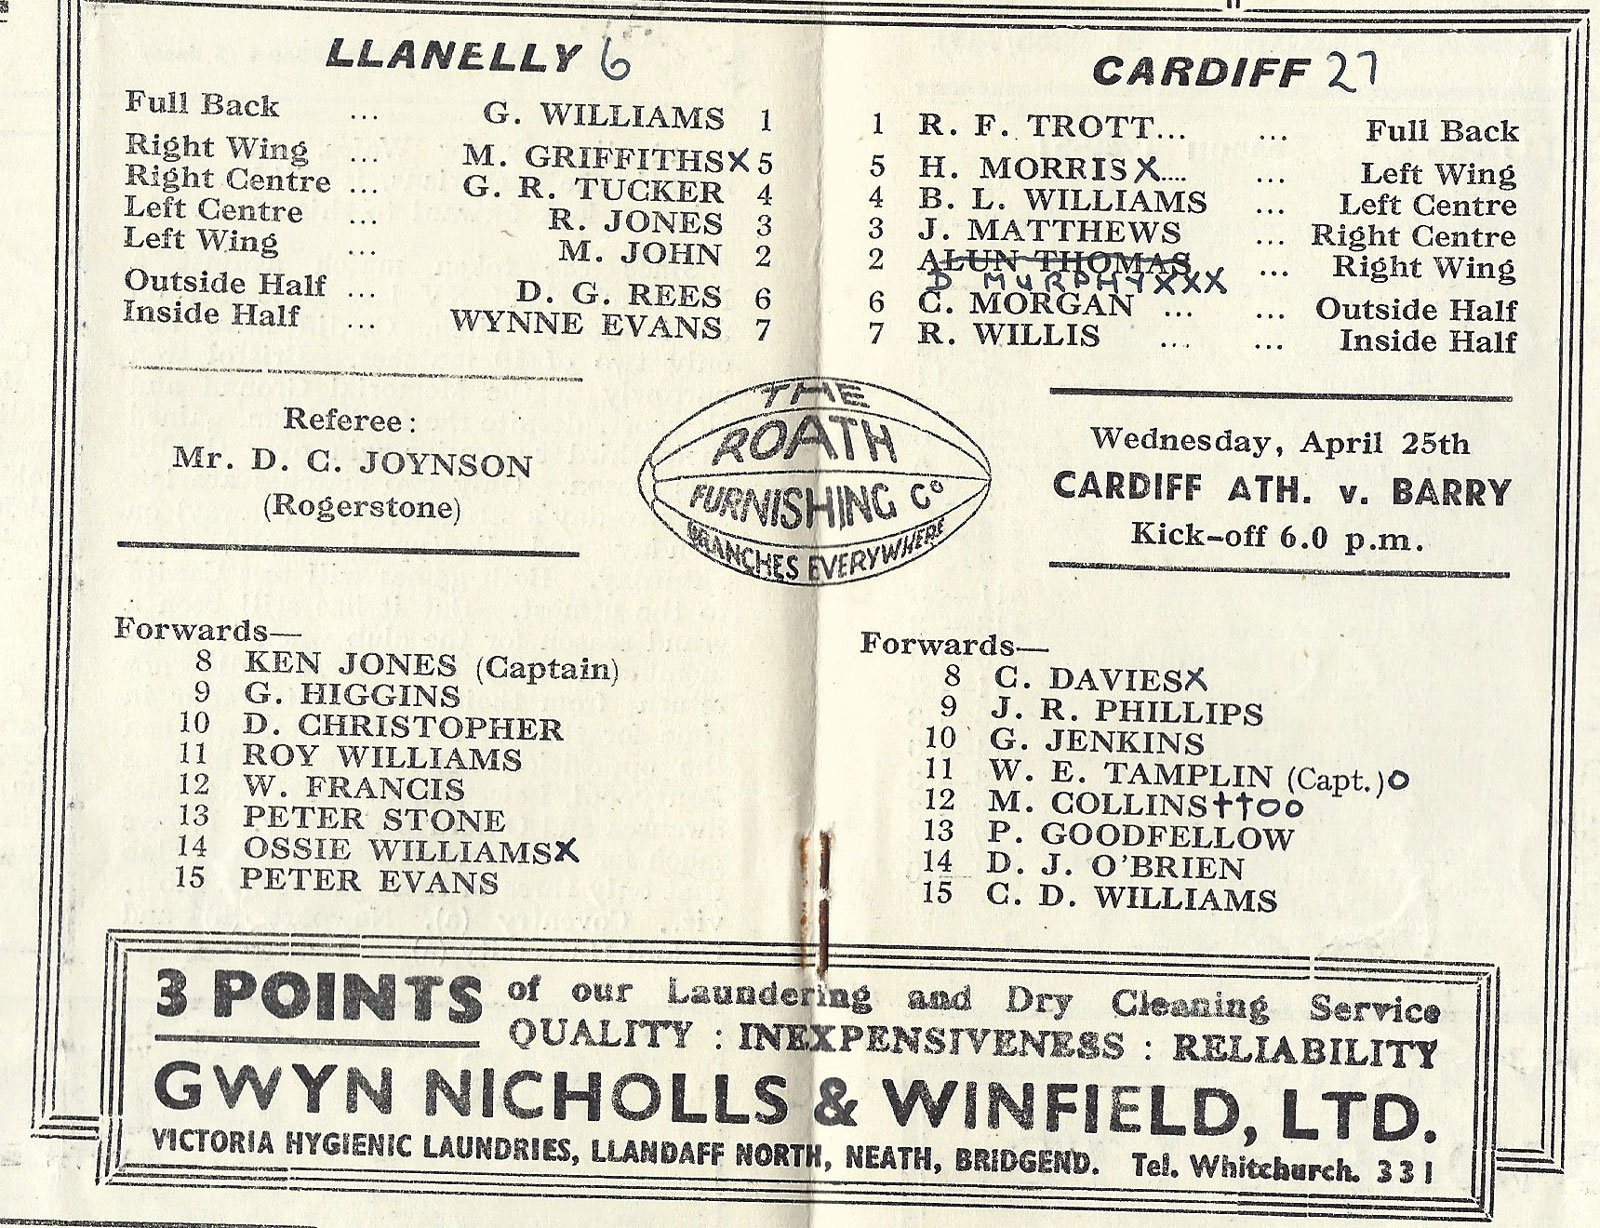 LLANELLY 6
Full Back ... G. WILLIAMS 1
Right Wing ... M. GRIFFITHS X 5
Right Centre ... G. R. TUCKER 4
Left Centre ... R. JONES 3
Left Wing ... M. JOHN 2
Outside Half ... D. G. REES 6
Inside Half ... WYNNE EVANS 7
CARDIFF 27
1 R. F. TROTT... ... Full Back
5 H. MORRIS X.... ... Left Wing
4 B. L. WILLIAMS ... Left Centre
3 J. MATTHEWS ... Right Centre
2 ALUN THOMAS ... Right Wing
D MURPHY XXX
6 C. MORGAN ... ... Outside Half
7 R. WILLIS ... ... Inside Half
Referee:
Mr. D. C. JOYNSON
(Rogerstone)
THE
ROATH
FURNISHING Co
BRANCHES EVERYWHERE
Wednesday, April 25th
CARDIFF ATH. v. BARRY
Kick-off 6.0 p.m.
Forwards—
8 KEN JONES (Captain)
9 G. HIGGINS
10 D. CHRISTOPHER
11 ROY WILLIAMS
12 W. FRANCIS
13 PETER STONE
14 OSSIE WILLIAMS X
15 PETER EVANS
Forwards—
8 C. DAVIES X
9 J. R. PHILLIPS
10 G. JENKINS
11 W. E. TAMPLIN (Capt.) O
12 M. COLLINS ††OO
13 P. GOODFELLOW
14 D. J. O'BRIEN
15 C. D. WILLIAMS
3 POINTS of our Laundering and Dry Cleaning Service
QUALITY : INEXPENSIVENESS : RELIABILITY
GWYN NICHOLLS & WINFIELD, LTD.
VICTORIA HYGIENIC LAUNDRIES, LLANDAFF NORTH, NEATH, BRIDGEND. Tel. Whitchurch. 331